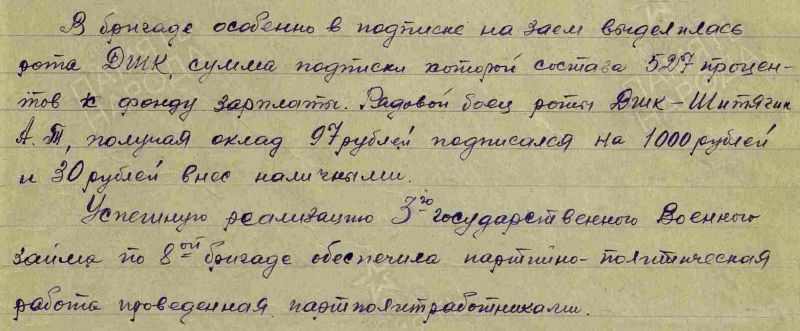 В бригаде особенно в подписке на заем выделилась
рота ДШК, сумма подписки которой состава 527 процен-
тов к фонду зарплаты. Рядовой боец роты ДШК – Шитягин
А.Т, получая оклад 97 рублей подписался на 1000 рублей
и 30 рублей внес наличными.
Успешную реализацию 3го государственного Военного
займа по 8ой бригаде обеспечила партийно-политическая
работа проведенная партполитработниками.